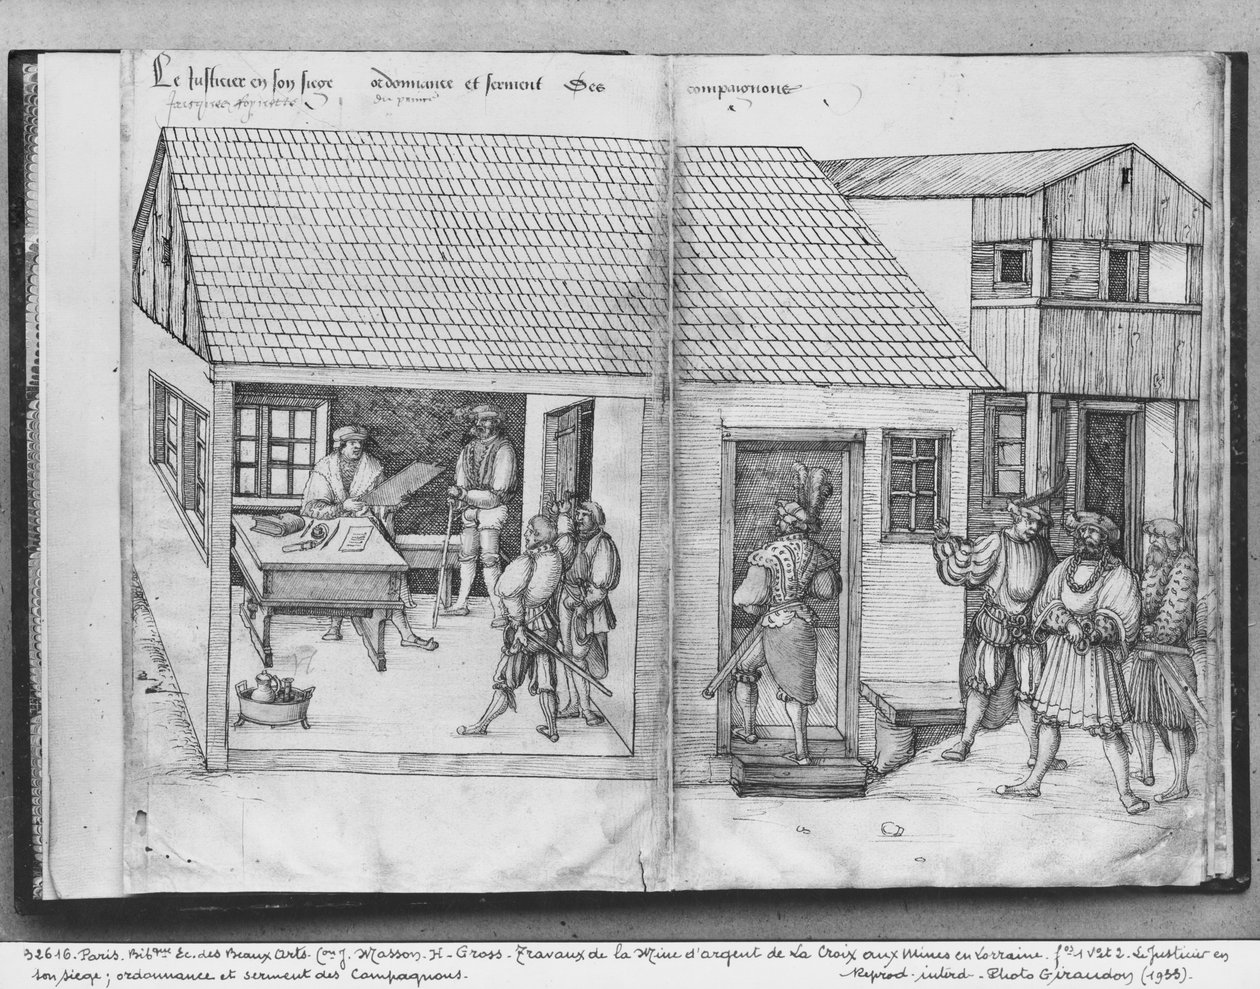 Le Justicier en son siege ordonnance et serment Des compaignons
du prince
32616. Paris. Bibque Ec. des Beaux Arts. Con J. Masson. H. Gross. Travaux de la Mine d'argent de La Croix aux Mines en Lorraine. fos 1 vo et 2. Le Justicier en
son siege; ordonnance et serment des Compagnons.
Reprod. interd. - Photo Giraudon (1933).